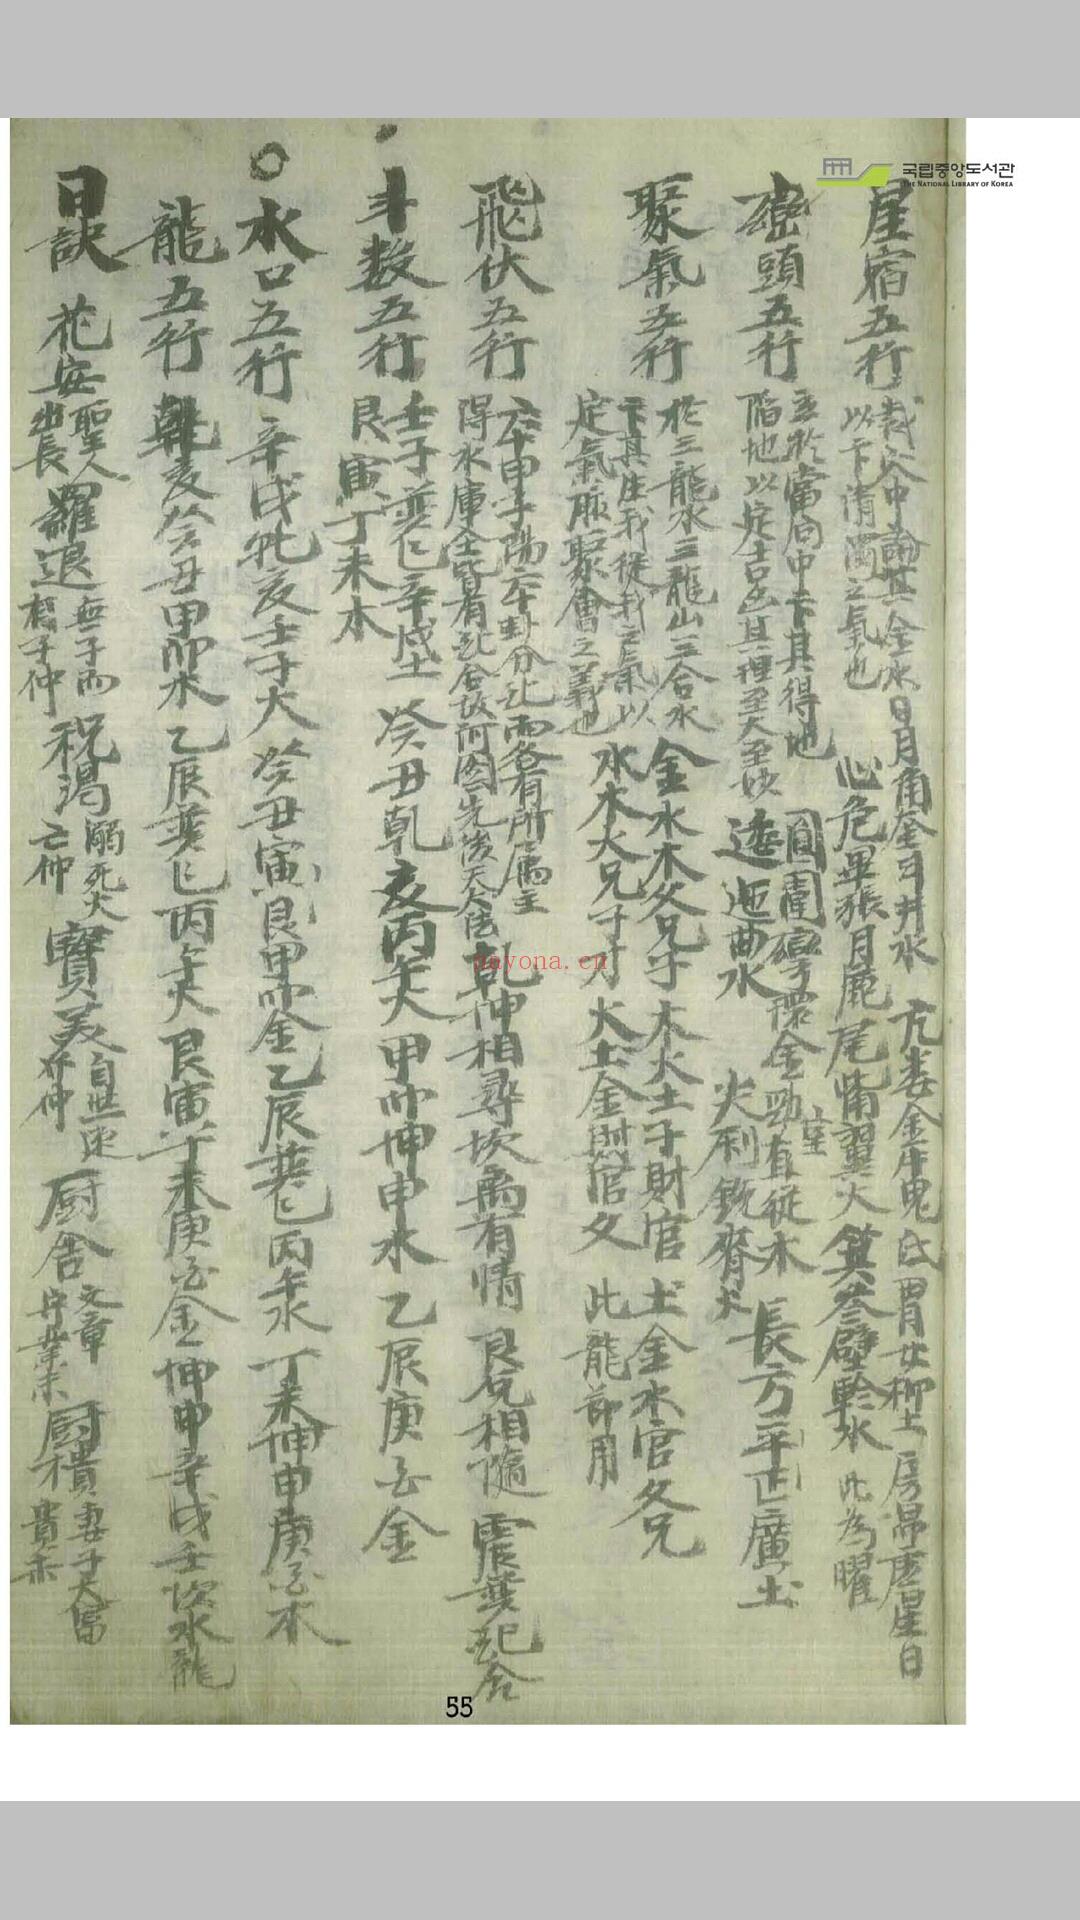 국립중앙도서관
THE NATIONAL LIBRARY OF KOREA
星宿五行
穴中論其金水日月角奎斗井水 亢娄金牛鬼 氐胃女柳土 房昴虛星日
以下清濁之氣也 心危畢張月鹿 尾觜翼火 箕參壁軫水 此為曜
巒頭五行
立於當向中卞其得地 圓圍彎環金 勁直從木 長方平正廣土
陷地以定吉凶其理至大至妙 透迤曲水 尖利銳齊火
室
聚氣五行
於三龍水三龍山三合水 金水木父兄子 木火土子財官 土金水官父兄
卞其生我從我之氣以
定氣脈聚會之義也 水木火兄子才 火土金財官父 此龍節用
飛伏五行
六十甲子陽六十卦分之而各有所屬主
得水庫 皆有 合故 先後天大法
乾坤相尋坎离有情 艮兌相隨 震巽 合
斗数五行
壬子巽巳辛戌土 癸丑乾亥丙午火 甲卯坤申水 乙辰庚酉金
艮寅丁未木
水口五行 辛戌乾亥壬子火 癸丑寅艮甲卯金 乙辰巽巳丙午水 丁未坤申庚酉木
龍五行 乾亥癸丑甲卯水 乙辰巽巳丙午火 艮寅丁未庚酉金 坤申辛戌壬坎水龍
日訣
花安 聖人出長
羅退 無子而 子仲
祝渴 溺死火亡仲
寶美 自 仲
厨舍 文章 守業末
厨櫃 妻子大富貴末
nayona.cn
55